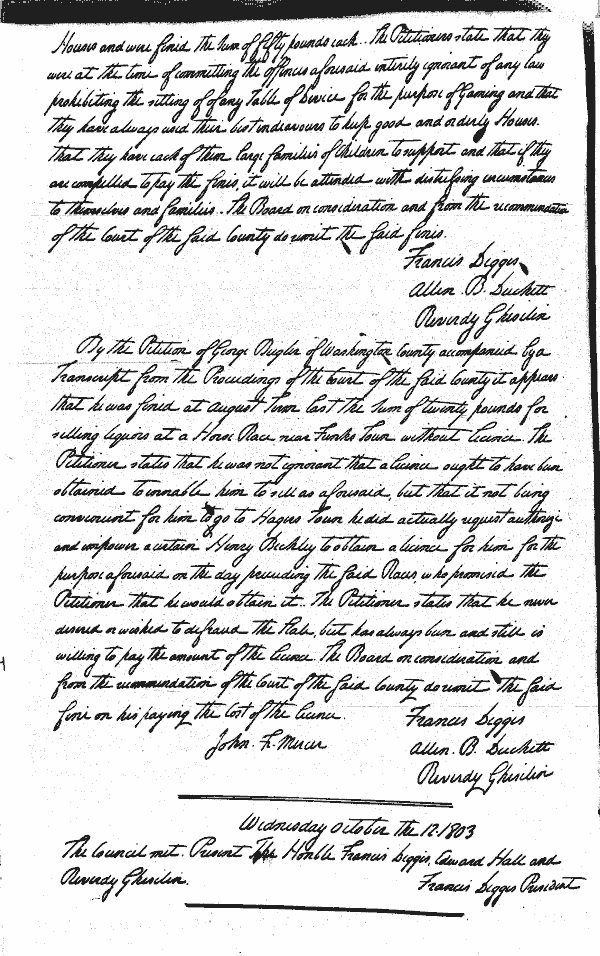 Houses and were fined the Sum of fifty pounds each. The Petitioners state that they
were at the time of committing the offences aforesaid entirely ignorant of any law
prohibiting the sitting of of any Table of Device for the purpose of Gaming and that
they have always used their best indeavours to keep good and orderly Houses.
that they have each of them large families of Children to support and that if they
are compelled to pay the fines, it will be attended with distressing circumstances
to themselves and families. The Board on consideration and from the recommendation
of the Court of the said County do remit the said fines.
Francis Digges
Allen B. Duckett
Reverdy Ghiselin
By the Petition of George Bugler of Washington County accompanied by a
Transcript from the Proceedings of the Court of the said County it appears
that he was fined at August Term last the sum of twenty pounds for
selling liquors at a Horse Race near Funks Town without licence. The
Petitioner states that he was not ignorant that a licence ought to have been
obtained to innable him to sell as aforesaid, but that it not being
convenient for him to go to Hagers Town he did actually request authorize
and impower a certain Henry Beckley to obtain a licence for him for the
purpose aforesaid on the day preceeding the said Races, who promised the
Petitioner that he would obtain it. The Petitioner states that he never
desired or wished to defraud the State, but has always been and still is
willing to pay the amount of the licence. The Board on consideration and
from the recommendation of the Court of the said County do remit the said
fine on his paying the Cost of the licence.
Francis Digges
John F. Mercer
Allen B. Duckett
Reverdy Ghiselin
Wednesday October the 12. 1803
The Council met. Present The Honble Francis Digges, Edward Hall and
Reverdy Ghiselin.
Francis Digges President